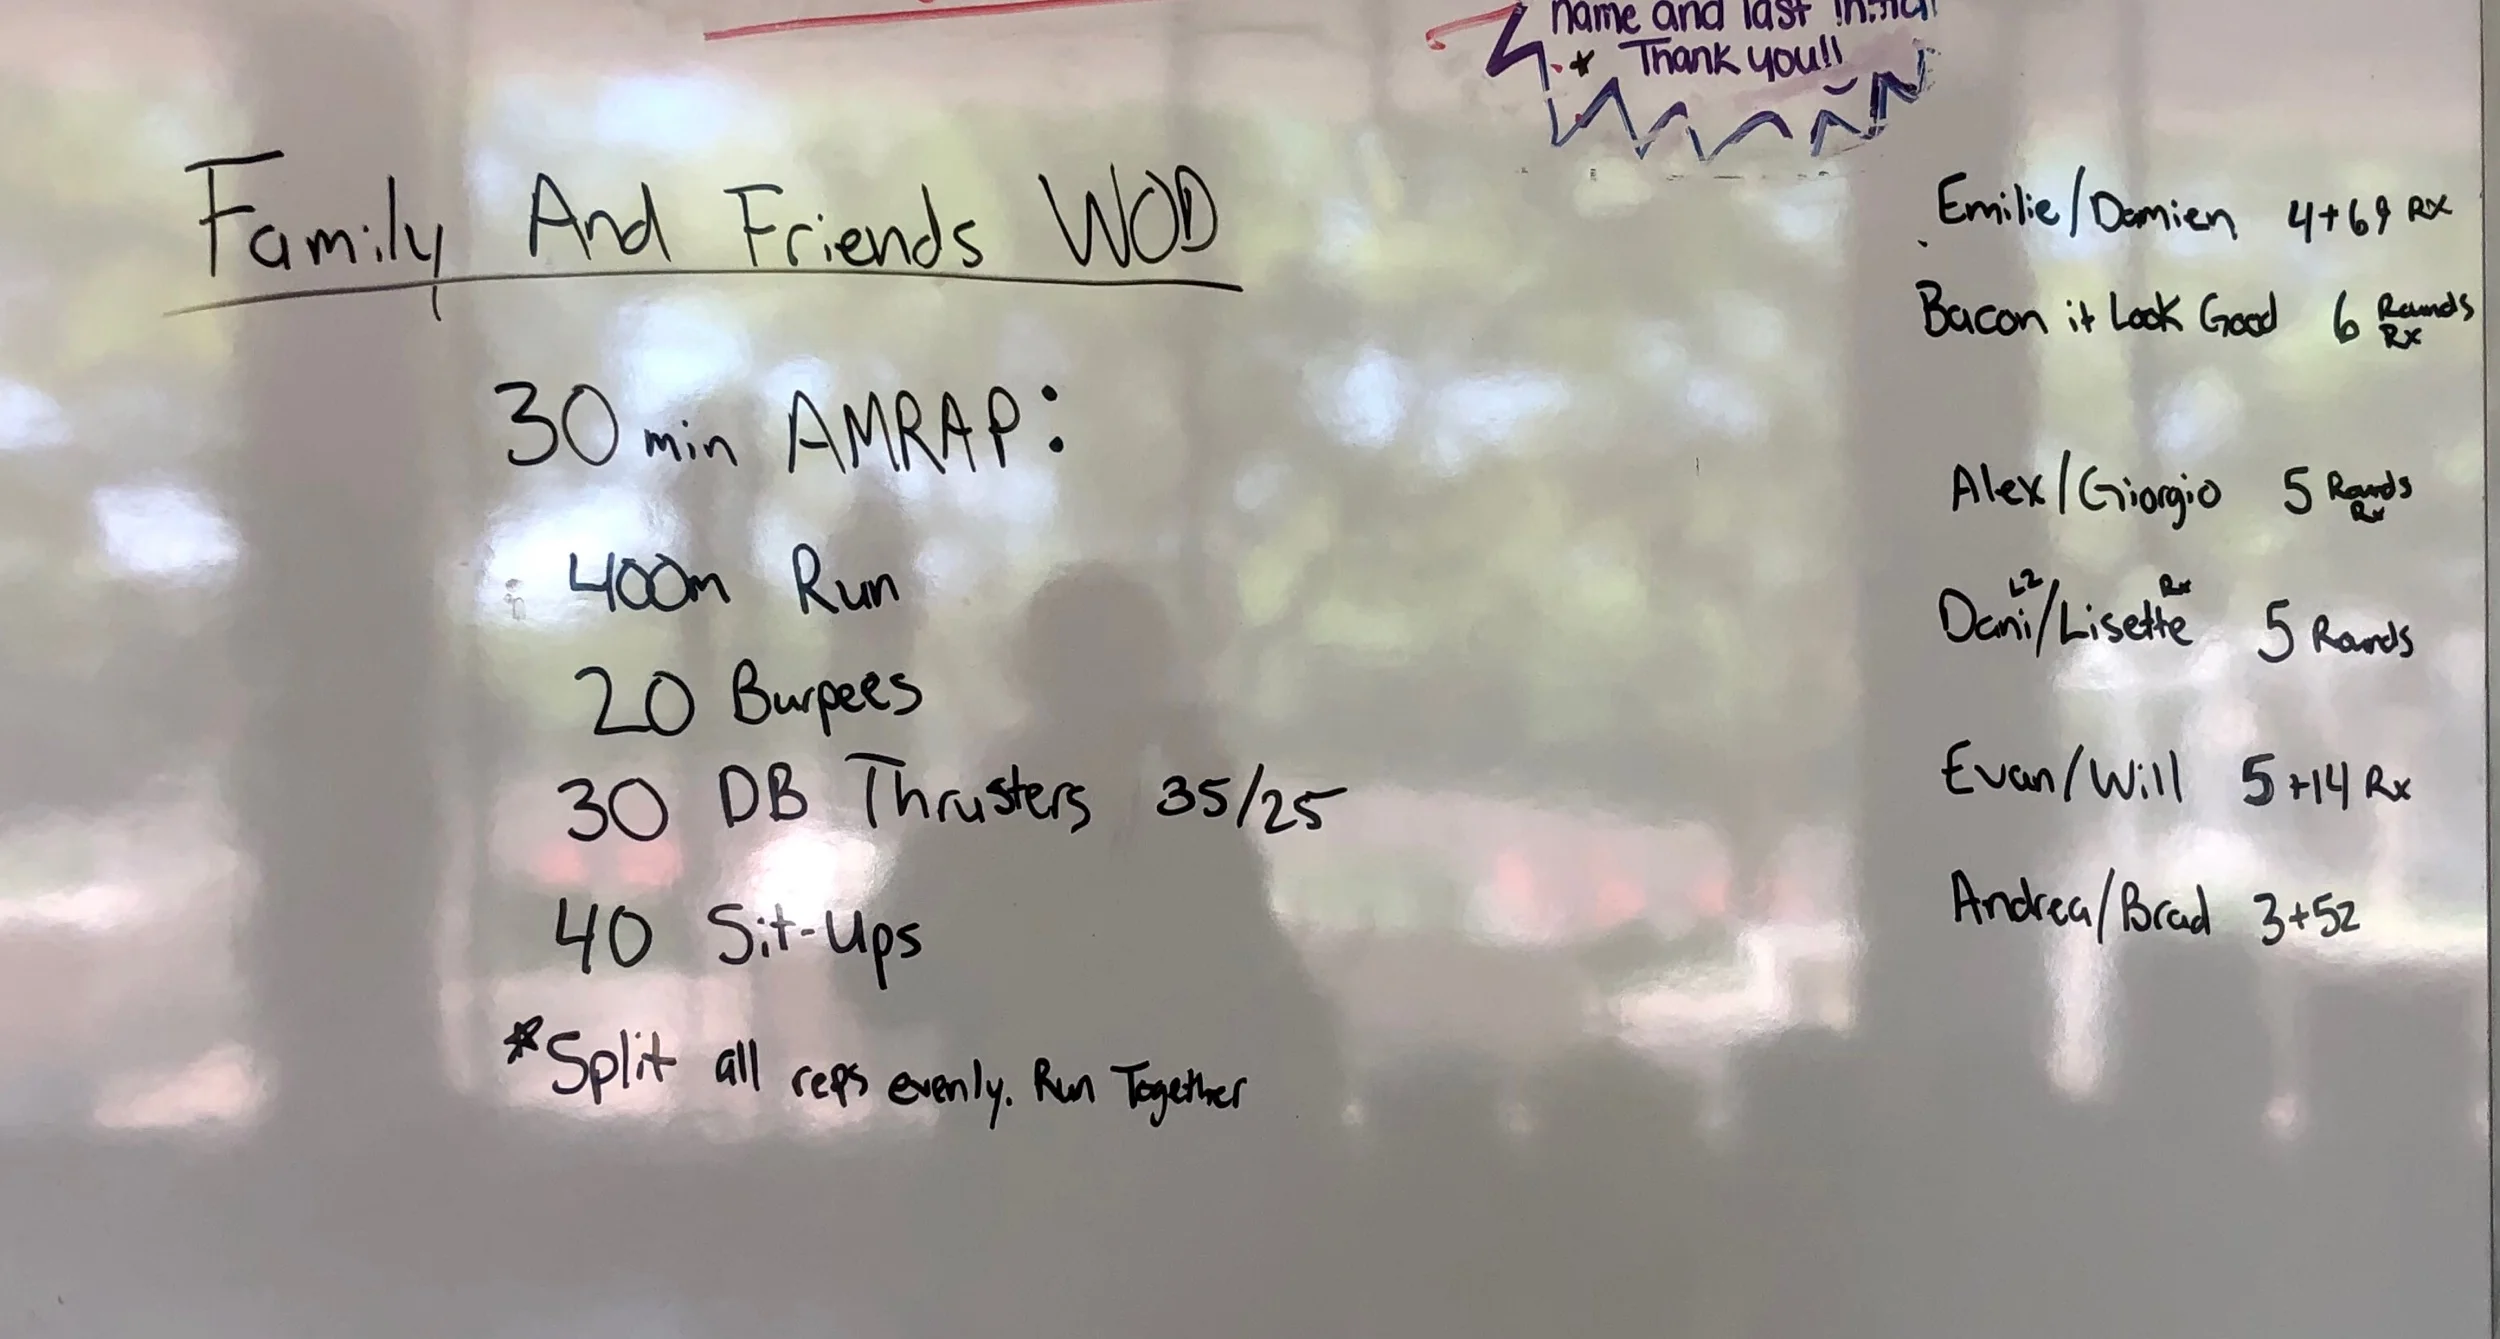 name and last initial
* Thank you!!
Family And Friends WOD
30 min AMRAP:
400m Run
20 Burpees
30 DB Thrusters 35/25
40 Sit-Ups
*Split all reps evenly. Run Together
Emilie/Damien 4+69 RX
Bacon it Look Good 6 Rounds
Rx
Alex/Giorgio 5 Rounds
Rx
L2 Rx
Dani/Lisette 5 Rounds
Evan/Will 5+14 Rx
Andrea/Brad 3+52